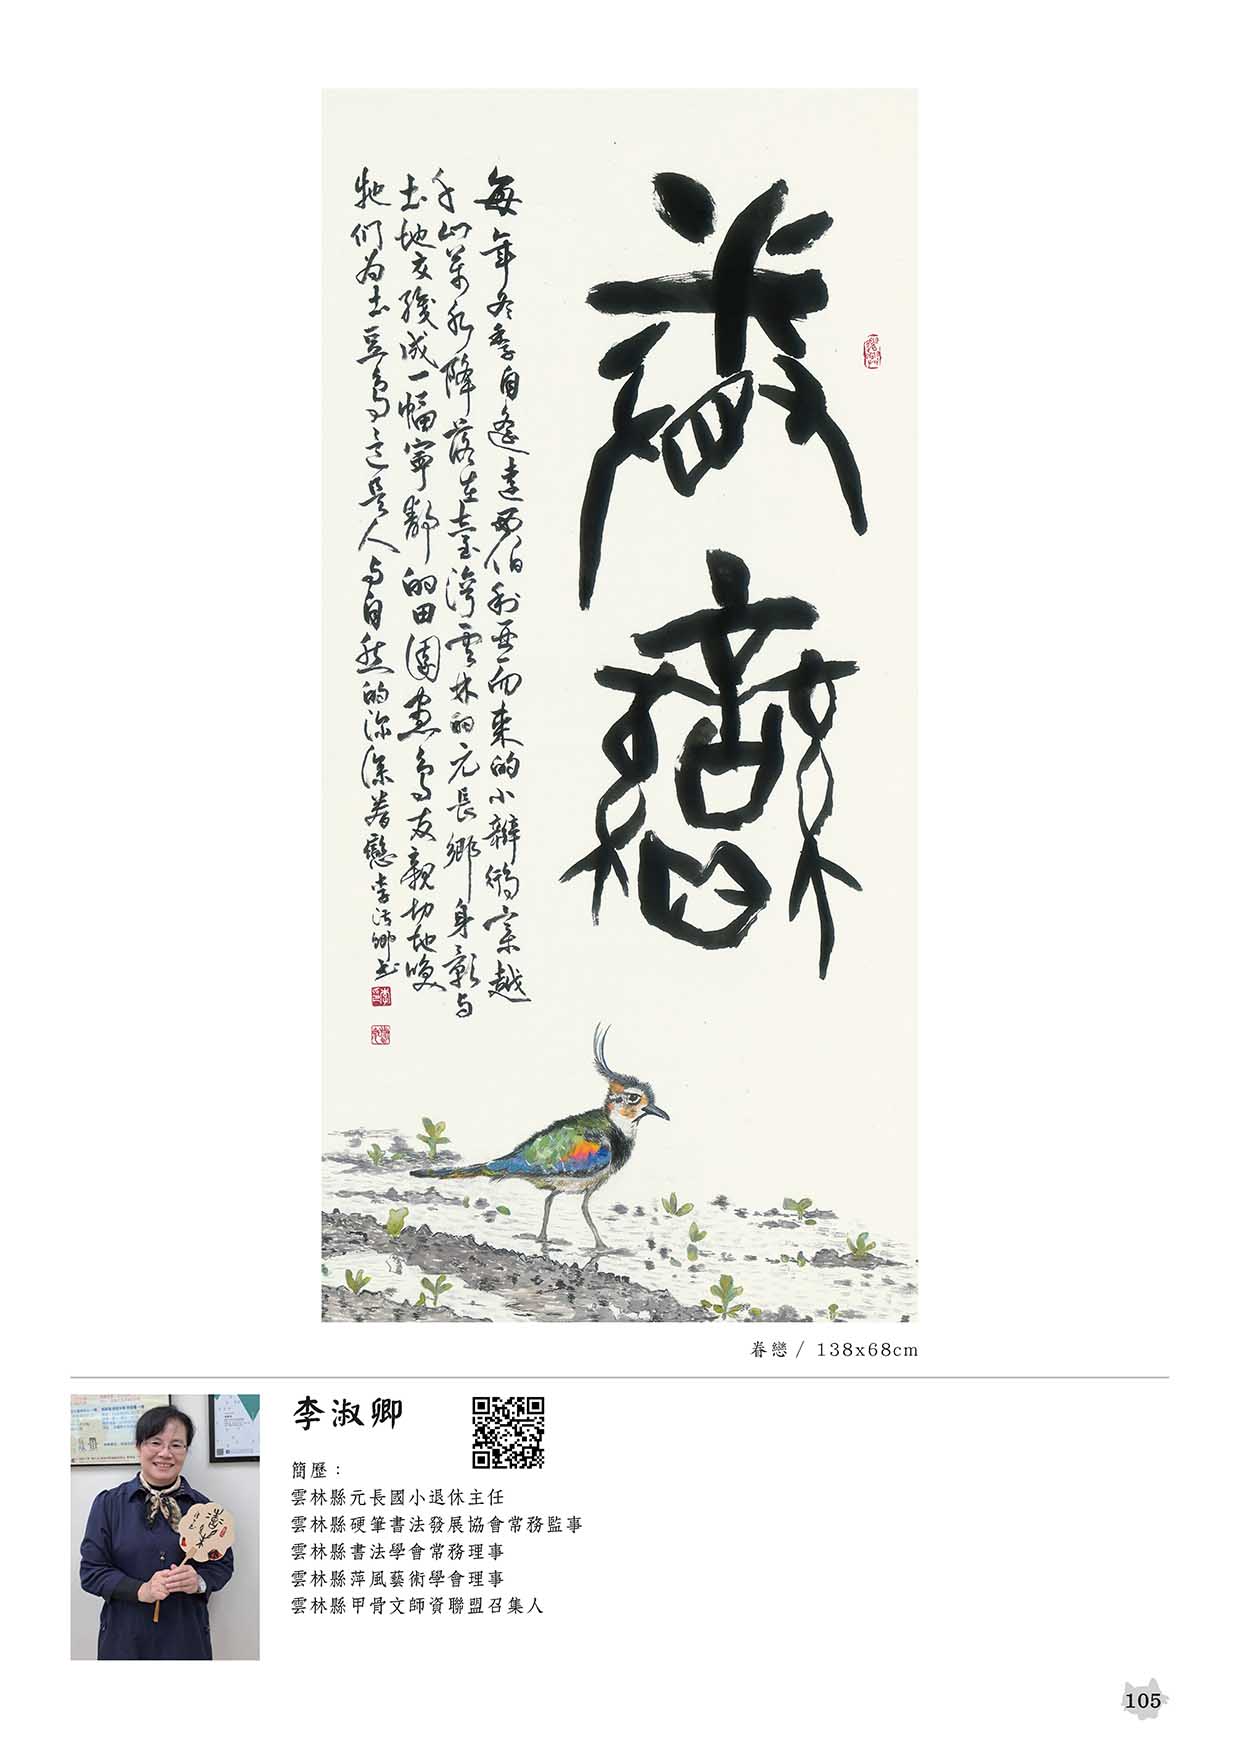 眷戀
每年冬季自遙遠西伯利亞而來的小辮鴴穿越
千山萬水降落在臺灣雲林的元長鄉身影與
土地交織成一幅寧靜的田園畫鳥友親切地喚
牠們為土豆鳥這是人與自然的深深眷戀李淑卿書
眷戀 / 138x68cm
李淑卿
簡歷：
雲林縣元長國小退休主任
雲林縣硬筆書法發展協會常務監事
雲林縣書法學會常務理事
雲林縣萍風藝術學會理事
雲林縣甲骨文師資聯盟召集人
105